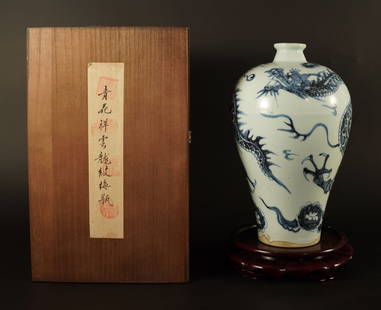 青花祥雲龍紋梅瓶